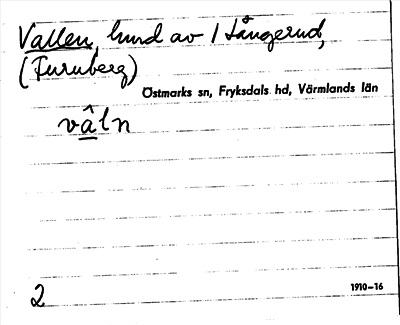 Vallen, hmd av 1 Långerud,
(Furuberg)
Östmarks sn, Fryksdals hd, Värmlands län
vâln
2
1910-16